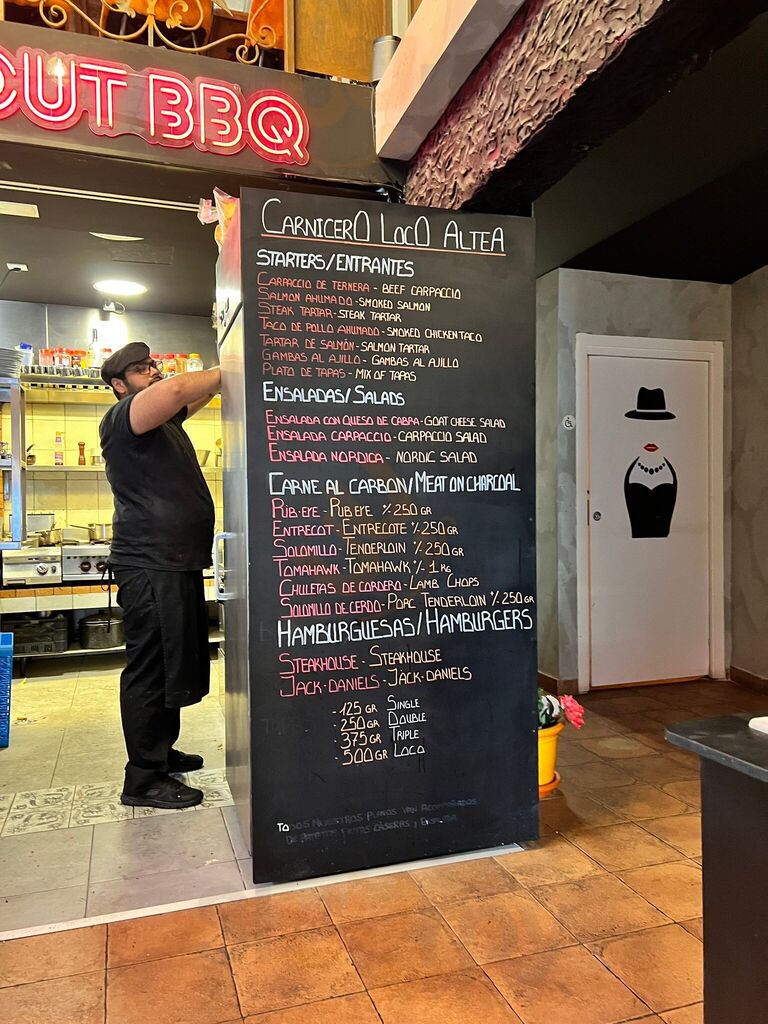 OUT BBQ
CARNICERO LOCO ALTEA
STARTERS/ENTRANTES
CARPACCIO DE TERNERA - BEEF CARPACCIO
SALMON AHUMADO - SMOKED SALMON
STEAK TARTAR - STEAK TARTAR
TACO DE POLLO AHUMADO - SMOKED CHICKEN TACO
TARTAR DE SALMÓN - SALMON TARTAR
GAMBAS AL AJILLO - GAMBAS AL AJILLO
PLATO DE TAPAS - MIX OF TAPAS
ENSALADAS/SALADS
ENSALADA CON QUESO DE CABRA - GOAT CHEESE SALAD
ENSALADA CARPACCIO - CARPACCIO SALAD
ENSALADA NORDICA - NORDIC SALAD
CARNE AL CARBON/MEAT ON CHARCOAL
RIB-EYE - RIB EYE %250 GR
ENTRECOT - ENTRECOTE %250 GR
SOLOMILLO - TENDERLOIN %250 GR
TOMAHAWK - TOMAHAWK %- 1 KG
CHULETAS DE CORDERO - LAMB CHOPS
SOLOMILLO DE CERDO - PORC TENDERLOIN %250 GR
HAMBURGUESAS/HAMBURGERS
STEAKHOUSE - STEAKHOUSE
JACK-DANIELS - JACK-DANIELS
-125 GR SINGLE
-250 GR DOUBLE
-375 GR TRIPLE
-500 GR LOCO
TODOS NUESTROS PLATOS VAN ACOMPAÑADOS
DE PATATAS FRITAS CASERAS Y ENSALADA